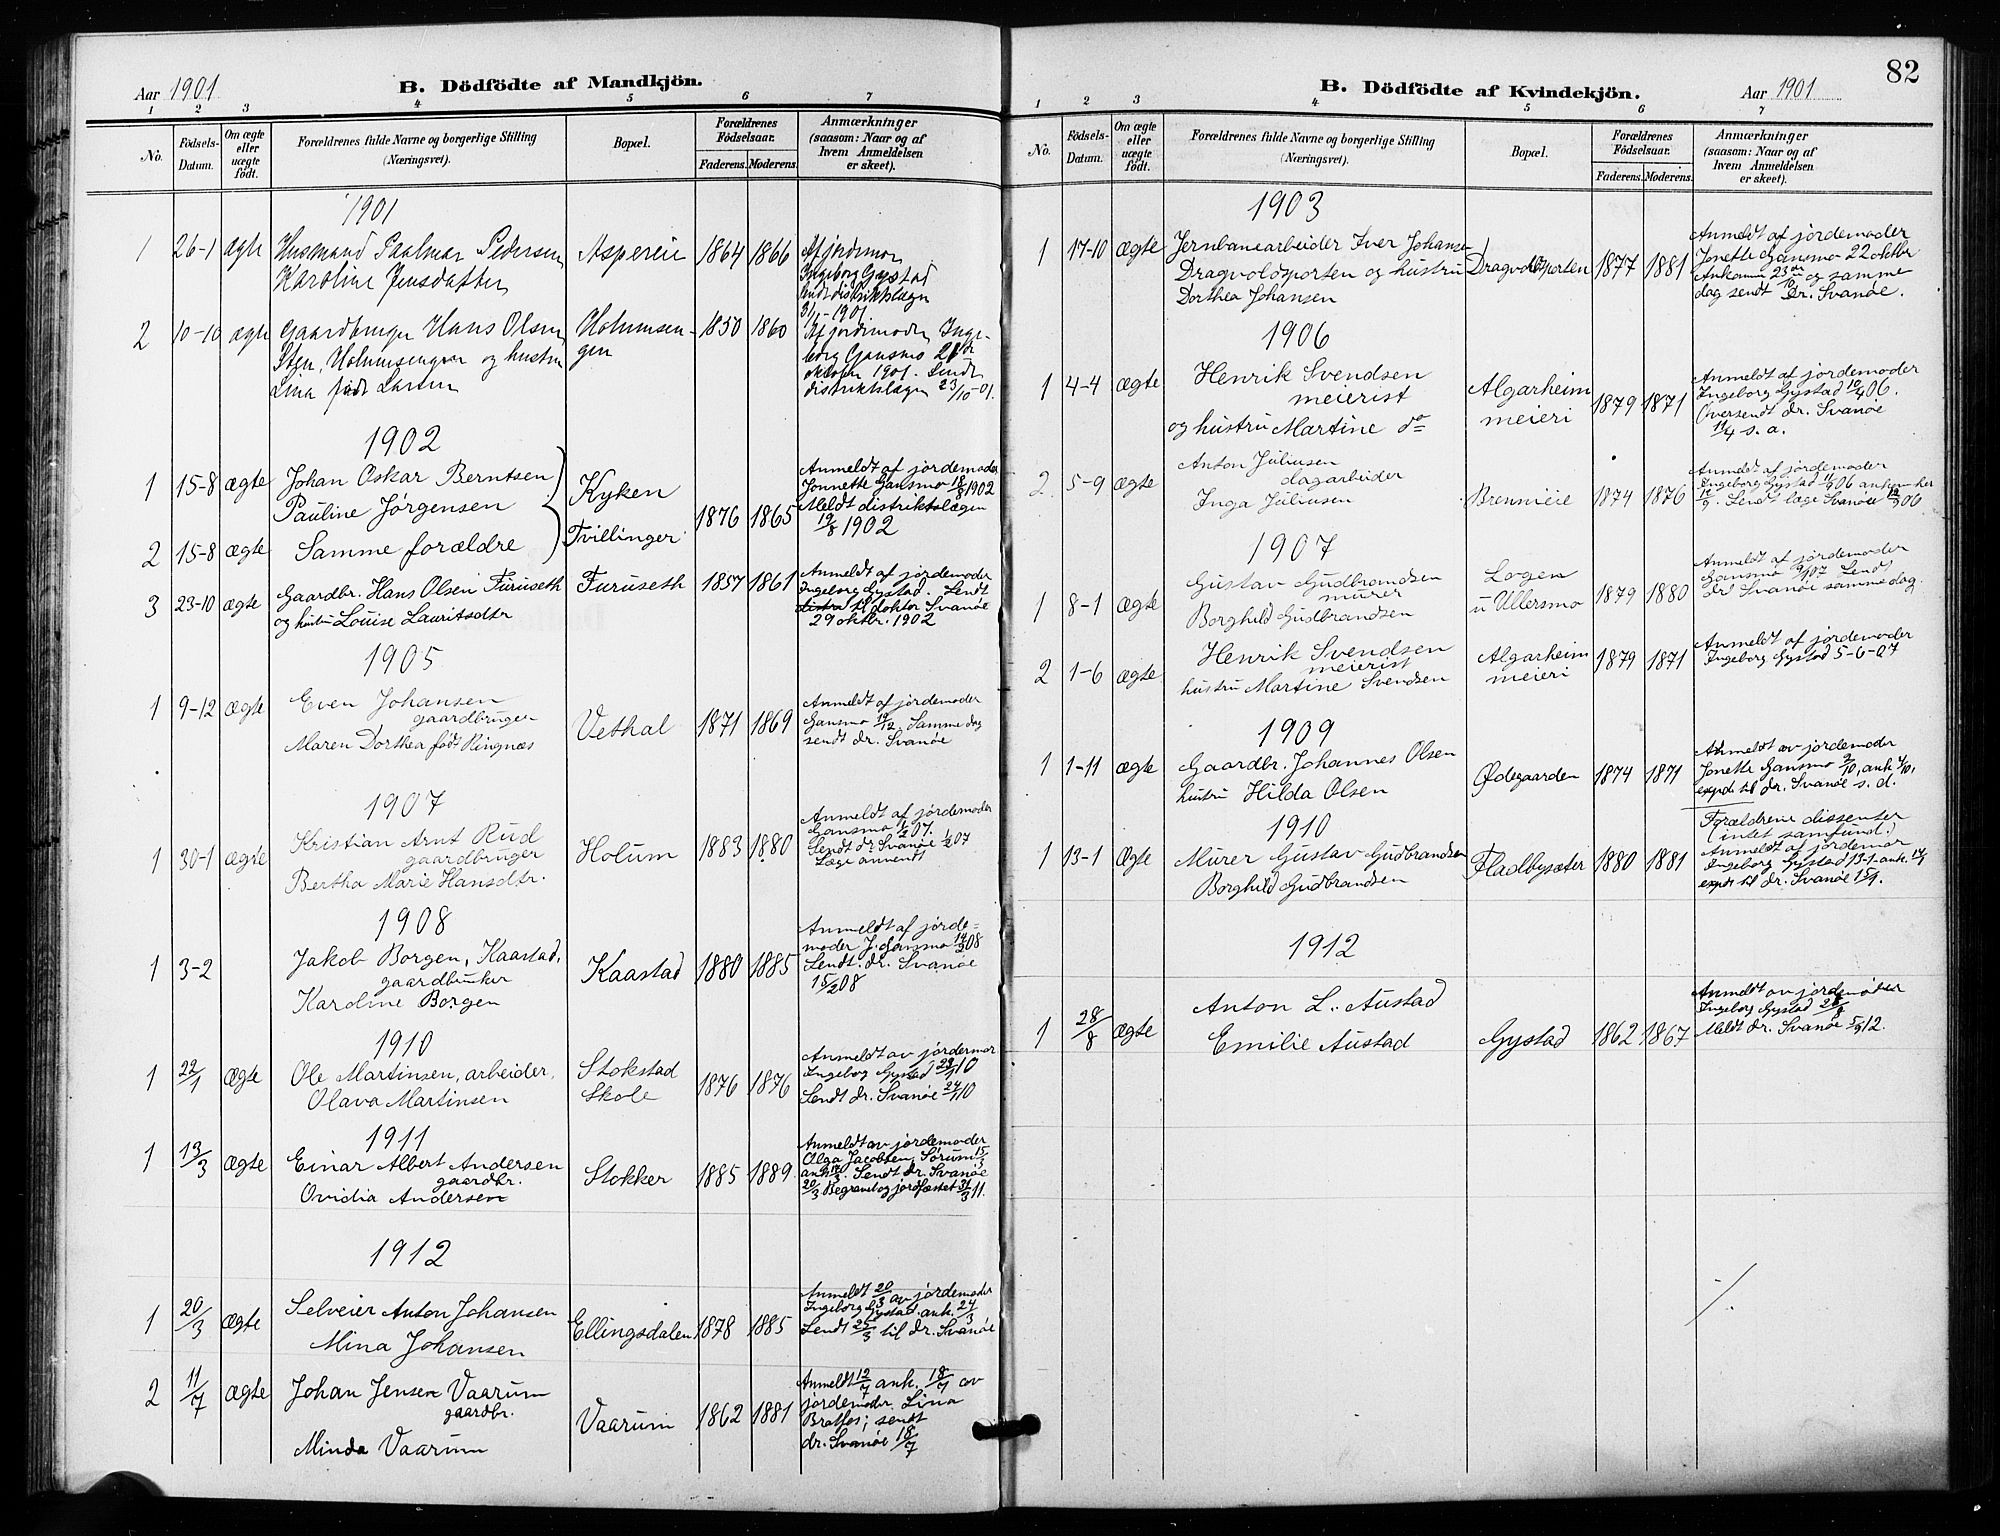 Aar 1901
B. Dödfödte af Mandkjön.
1 2 3 4 5 6 7
No.
Födsels-Datum.
Om ægte eller uægte födt.
Forældrenes fulde Navne og borgerlige Stilling (Næringsvei).
Bopæl.
Forældrenes Födselsaar.
Faderens. Moderens.
Anmærkninger (saasom: Naar og af hvem Anmeldelsen er skeet).
1901
1 26-1 ægte Husmand Paalmar Pedersen Aspereie 1864 1866 Af jordemor
Karoline Jensdatter Ingeborg Gystad
Sendt distriktslægen
31/1-1901
2 10-10 ægte Gaardbruger Hans Olsen Holumsen- 1850 1860 Af jordemoder Inge-
Sten, Holumsengen og hustru gen borg Gansmo 21de
Lina født Larsen oktober 1901. Sendt
distriktslægen 23/10-01.
1902
1 15-8 ægte Johan Oskar Berntsen Kyken 1876 1865 Anmeldt af jordemoder
Pauline Jørgensen Jonnette Gansmo 18/8 1902
2 15-8 ægte Samme forældre Tvillinger Meldt distriktslægen
19/8 1902
3 23-10 ægte Gaardbr. Hans Olsen Furuseth Furuseth 1857 1861 Anmeldt af jordemoder
og hustru Louise Lauritsdtr Ingeborg Gystad. Sendt
til doktor Svanøe
29 oktbr. 1902
1905
1 9-12 ægte Even Johansen Vethal 1871 1869 Anmeldt af jordemoder
gaardbruger Gansmo 19/12. Samme dag
Maren Dorthea født Ringnæs sendt dr. Svanøe
1907
1 30-1 ægte Kristian Arnt Rud Holum 1883 1880 Anmeldt af jordemoder
gaardbruger Gansmo 1/2 07.
Bertha Marie Hansdtr. Sendt dr. Svanøe 1/2 07
Læge anvendt
1908
1 3-2 Jakob Borgen, Kaastad, Kaastad 1880 1885 Anmeldt af jorde-
gaardbruker moder J. Gansmo 14/2 08
Karoline Borgen Sendt. dr. Svanøe
15/2 08
1910
1 22/1 ægte Ole Martinsen, arbeider, Stokstad 1876 1876 Anmeldt av jordemor
Olava Martinsen Skole Ingeborg Gystad 23/1 10
Sendt dr. Svanøe 24/1 10
1911
1 13/3 ægte Einar Albert Andersen Stokker 1885 1889 Anmeldt av jordemoder
gaardbr. Olga Jacobsen, Sørum 15/3
Ovidia Andersen ank. 17/3. Sendt dr. Svanøe
20/3 Begravet og jordfæstet 31/3 11.
1912
1 20/3 ægte Selveier Anton Johansen Ellingsdalen 1878 1885 Anmeldt 20/3 av jordemoder
Mina Johansen Ingeborg Gystad. ank. 24/3
Sendt 25/3 til dr. Svanøe
2 11/7 ægte Johan Jensen Vaarum Vaarum 1862 1881 Anmeldt 12/7 ank. 18/7 av
gaardbr. jordemoder Lina
Minda Vaarum sendt
dr. Svanøe 18/7
82
B. Dödfödte af Kvindekjön.
Aar 1901
1 2 3 4 5 6 7
No.
Födsels-Datum.
Om ægte eller uægte födt.
Forældrenes fulde Navne og borgerlige Stilling (Næringsvei).
Bopæl.
Forældrenes Födselsaar.
Faderens. Moderens.
Anmærkninger (saasom: Naar og af hvem Anmeldelsen er skeet).
1903
1 17-10 ægte Jernbanearbeider Iver Johansen Dragvoldsporten 1877 1881 Anmeldt af jordemoder
Dragvoldsporten og hustru Jonette Gansmo 22 oktbr
Dorthea Johansen Ankommen 23de/10 og samme
dag sendt Dr. Svanøe.
1906
1 4-4 ægte Henrik Svendsen Algarheim 1879 1871 Anmeldt af jordemoder
meierist meieri Ingeborg Gystad 10/4 06.
og hustru Martine do Oversendt dr. Svanøe
11/4 s. a.
2 5-9 ægte Anton Juliusen Brenneie 1874 1876 Anmeldt af jordemoder
dagarbeider Ingeborg Gystad
Inga Juliusen Sendt læge Svanøe
1907
1 8-1 ægte Gustav Gudbrandsen Logen 1879 1880 Anmeldt af jordemoder
murer u Ullersmo Gansmo 9/1 07 Sendt
Borghild Gudbrandsen dr Svanøe samme dag.
2 1-6 ægte Henrik Svendsen Algarheim 1879 1871 Anmeldt af jordemoder
meierist meieri Ingeborg Gystad 5-6-07
hustru Martine Svendsen
1909
1 1-11 ægte Gaardbr. Johannes Olsen Ødegaarden 1874 1871 Anmeldt av jordemoder
hustru Hilda Olsen Jonette Gansmo 2/10, ank 4/10,
exped til dr. Svanøe s. d.
1910
1 13-1 Ægte Murer Gustav Gudbrandsen Fladbysæter 1880 1881 Forældrene dissenter
Borghild Gudbrandsen (intet samfund.)
Anmeldt af jordemor
Ingeborg Gystad 13-1-ank. 14/1
exp. til dr. Svanøe 15/1.
1912
1 28/8 ægte Anton L. Austad Gystad 1862 1867 Anmeldt av jordemoder
Emilie Austad Ingeborg Gystad 28/8
Meldt dr. Svanøe 5/9 12.